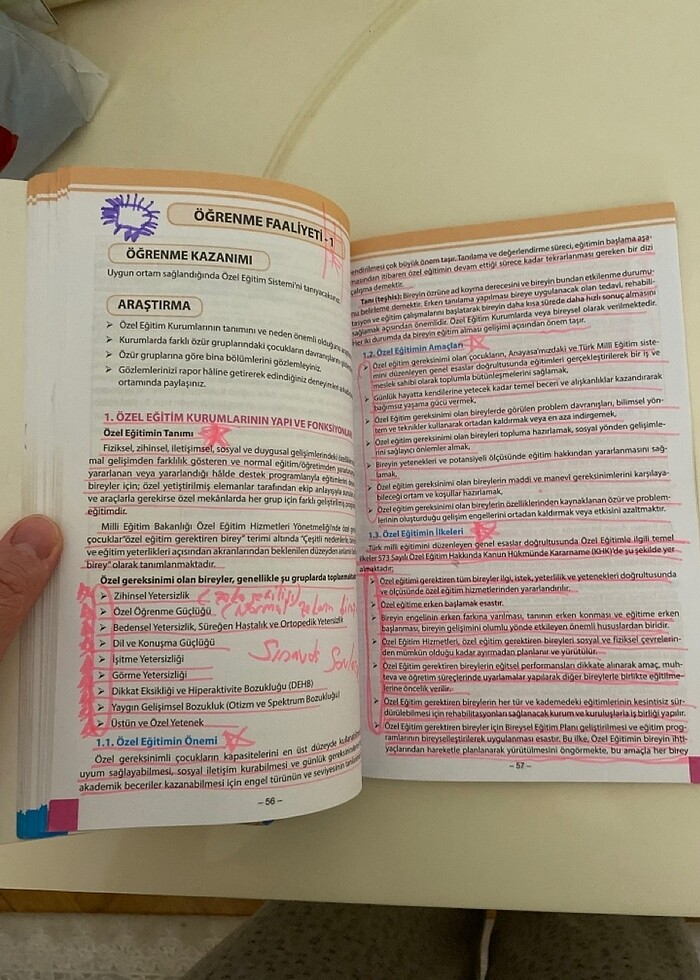 ÖĞRENME FAALİYETİ - 1
ÖĞRENME KAZANIMI
Uygun ortam sağlandığında Özel Eğitim Sistemi'ni tanıyacaksınız.
ARAŞTIRMA
➢ Özel Eğitim Kurumlarının tanımını ve neden önemli olduğunu
➢ Kurumlarda farklı özür gruplarındaki çocukların davranışlarını
➢ Özür gruplarına göre bina bölümlerini gözlemleyiniz.
➢ Gözlemlerinizi rapor hâline getirerek edindiğiniz deneyimleri
ortamında paylaşınız.
1. ÖZEL EĞİTİM KURUMLARININ YAPI VE FONKSİYONLARI
Özel Eğitimin Tanımı
Fiziksel, zihinsel, iletişimsel, sosyal ve duygusal gelişimlerindeki
mal gelişimden farklılık gösteren ve normal eğitim/öğretimden
yararlanan veya yararlandığı hâlde destek programlarıyla eğitimlerini
bireyler için; özel yetiştirilmiş elemanlar tarafından ekip anlayışıyla
ve araçlarla gerekirse özel mekânlarda her grup için farklı geliştirilmiş
eğitimdir.
Milli Eğitim Bakanlığı Özel Eğitim Hizmetleri Yönetmeliği'nde özel
çocuklar "özel eğitim gerektiren birey" terimi altında "Çeşitli nedenlerle,
ve eğitim yeterlikleri açısından akranlarından beklenilen düzeyden anlamlı
birey" olarak tanımlanmaktadır.
Özel gereksinimi olan bireyler, genellikle şu gruplarda toplanmaktadır
➢ Zihinsel Yetersizlik
➢ Özel Öğrenme Güçlüğü
➢ Bedensel Yetersizlik, Süreğen Hastalık ve Ortopedik Yetersizlik
➢ Dil ve Konuşma Güçlüğü
➢ İşitme Yetersizliği
➢ Görme Yetersizliği
➢ Dikkat Eksikliği ve Hiperaktivite Bozukluğu (DEHB)
➢ Yaygın Gelişimsel Bozukluk (Otizm ve Spektrum Bozukluğu)
➢ Üstün ve Özel Yetenek
1.1. Özel Eğitimin Önemi
Özel gereksinimli çocukların kapasitelerini en üst düzeyde
uyum sağlayabilmesi, sosyal iletişim kurabilmesi ve günlük
akademik beceriler kazanabilmesi için engel türünün ve seviyesinin
– 56 –
endirilmesi çok büyük önem taşır. Tanılama ve değerlendirme süreci, eğitimin başlama aşa-
masından itibaren özel eğitimin devam ettiği sürece kadar tekrarlanması gereken bir dizi
çalışma demektir.
Tanı (teşhis): Bireyin özrüne ad koyma derecesini ve bireyin bundan etkilenme durumu-
nu belirleme demektir. Erken tanılama yapılması bireye uygulanacak olan tedavi, rehabili-
tasyon ve eğitim çalışmalarını başlatarak bireyin daha kısa sürede daha hızlı sonuç almasını
sağlamak açısından önemlidir. Özel Eğitim Kurumlarda veya bireysel olarak verilmektedir.
Her iki durumda da bireyin eğitim alması gelişimi açısından önem taşır.
1.2. Özel Eğitimin Amaçları
➢ Özel eğitim gereksinimi olan çocukların, Anayasa'mızdaki ve Türk Millî Eğitim siste-
mini düzenleyen genel esaslar doğrultusunda eğitimleri gerçekleştirilerek bir iş ve
meslek sahibi olarak toplumla bütünleşmelerini sağlamak,
➢ Günlük hayatta kendilerine yetecek kadar temel beceri ve alışkanlıklar kazandırarak
bağımsız yaşama gücü vermek,
➢ Özel eğitim gereksinimi olan bireylerde görülen problem davranışları, bilimsel yön-
tem ve teknikler kullanarak ortadan kaldırmak veya en aza indirgemek,
➢ Özel eğitim gereksinimi olan bireyleri topluma hazırlamak, sosyal yönden gelişimle-
rini sağlayıcı önlemler almak,
➢ Bireyin yetenekleri ve potansiyeli ölçüsünde eğitim hakkından yararlanmasını sağ-
lamak,
➢ Özel eğitim gereksinimi olan bireylerin maddi ve manevi gereksinimlerini karşılaya-
bileceği ortam ve koşullar hazırlamak,
➢ Özel eğitim gereksinimi olan bireylerin özelliklerinden kaynaklanan özür ve problem-
lerinin oluşturduğu gelişim engellerini ortadan kaldırmak veya etkisini azaltmaktır.
1.3. Özel Eğitimin İlkeleri
Türk milli eğitimini düzenleyen genel esaslar doğrultusunda Özel Eğitimle ilgili temel
ilkeler 573 Sayılı Özel Eğitim Hakkında Kanun Hükmünde Kararname (KHK)'de şu şekilde yer
almaktadır:
➢ Özel eğitimi gerektiren tüm bireyler ilgi, istek, yeterlilik ve yetenekleri doğrultusunda
ve ölçüsünde özel eğitim hizmetlerinden yararlandırılır.
➢ Özel eğitime erken başlamak esastır.
➢ Bireyin engelinin erken farkına varılması, tanının erken konması ve eğitime erken
başlanması, bireyin gelişimini olumlu yönde etkileyen önemli hususlardan biridir.
➢ Özel Eğitim Hizmetleri, özel eğitim gerektiren bireyleri sosyal ve fiziksel çevrelerin-
den mümkün olduğu kadar ayırmadan planlanır ve yürütülür.
➢ Özel Eğitim gerektiren bireylerin eğitsel performansları dikkate alınarak amaç, muh-
teva ve öğretim süreçlerinde uyarlamalar yapılarak diğer bireylerle birlikte eğitilme-
lerine öncelik verilir.
➢ Özel Eğitim gerektiren bireylerin her tür ve kademedeki eğitimlerinin kesintisiz sür-
dürülebilmesi için rehabilitasyonları sağlanacak kurum ve kuruluşlarla iş birliği yapılır.
➢ Özel Eğitim gerektiren bireyler için Bireysel Eğitim Planı geliştirilmesi ve eğitim prog-
ramlarının bireyselleştirilerek uygulanması esastır. Bu ilke, Özel Eğitimin bireyin ihti-
yaçlarından hareketle planlanarak yürütülmesini öngörmekte, bu amaçla her birey
– 57 –